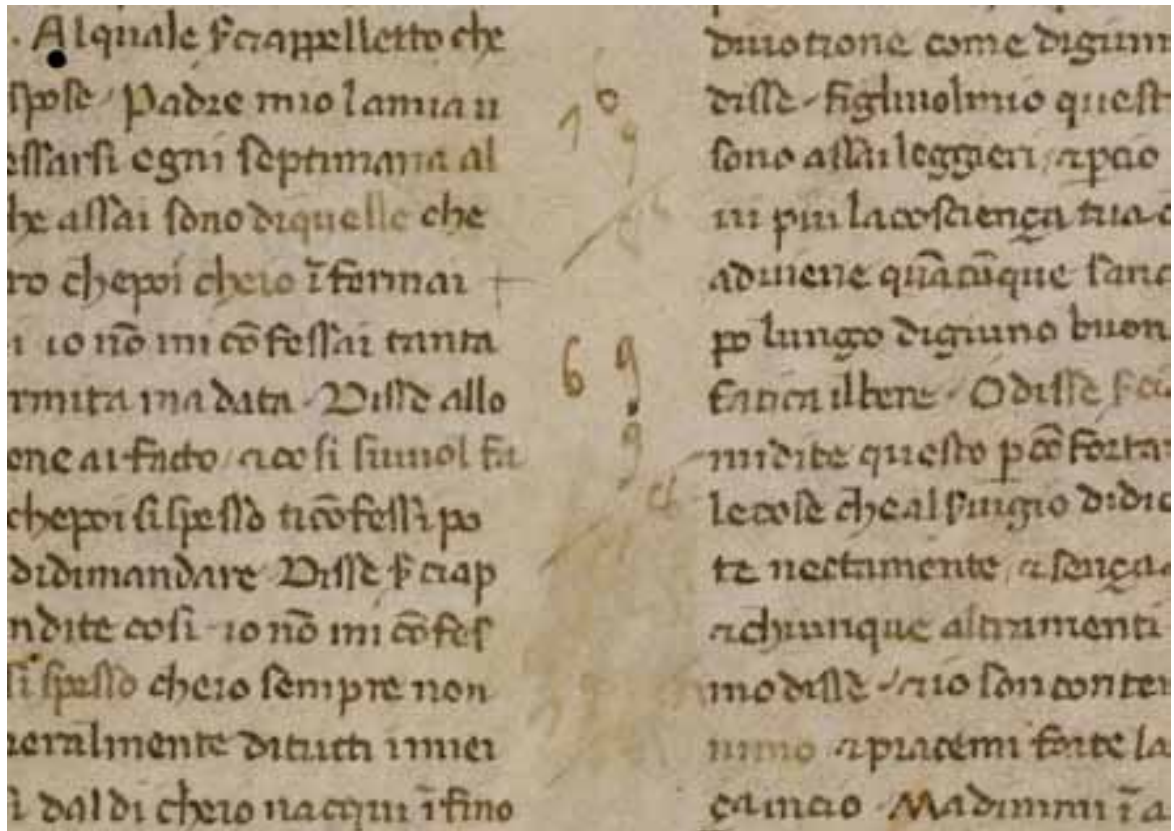 . Alquale s̄ ciappelletto che
spose / Padre mio lamia u
essarsi ogni septimana al
he assai sono diquelle che
ro chepoi cheio ĩfermai
i io nõ mi cõfessai tanta
rmita ma data / Disse allo
one ai facto / ⁊ cosi sivuol fa
chepoi sispesso ticõfessi po
didimandare Disse s̄ ciap
ndite cosi / io nõ mi cõfes
si spesso cheio sempre non
neralmente ditucti imiei
i daldi cheio nacqui ĩfino
1 0
9
6 9
9
divotione come digiun
disse / figliuolmio quest
sono assaileggieri / ⁊ pcio
ni piu lacoscienẹa tua
adiviene quãtũque sanc
po lungo digiuno buon
fatica ilbere / O disse s̄
midite questo p cõforta
lecose che al servigio didio
te nectamente / ⁊ senẹa
⁊ chiunque altramenti
mo disse / ⁊ io son conten
nimo ⁊ piacemi forte la
Madimmi ĩ a